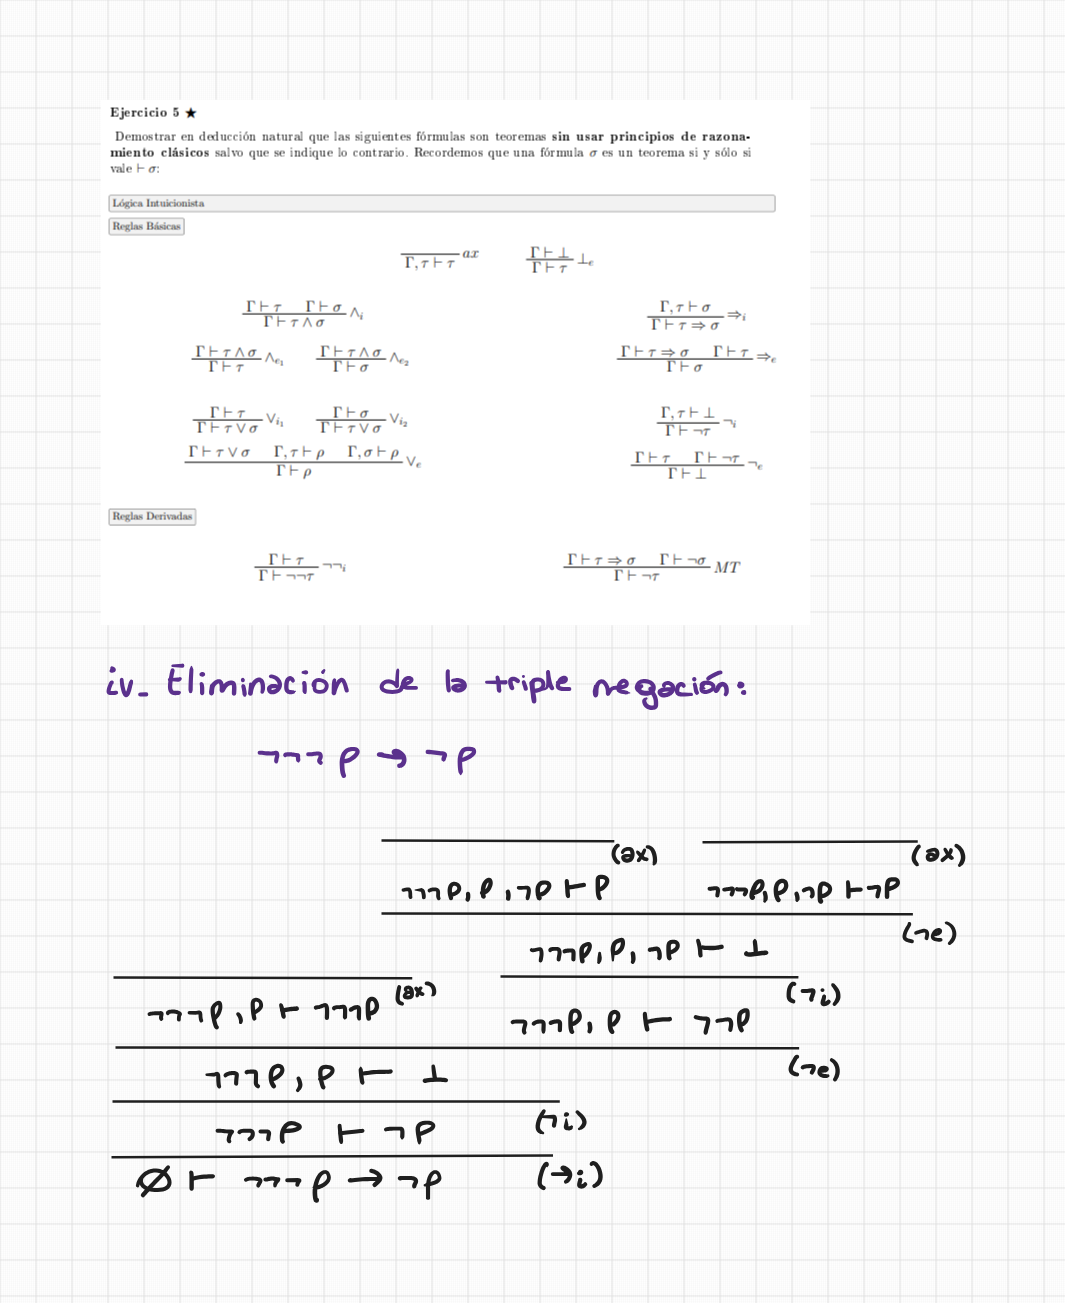 Ejercicio 5 ★
Demostrar en deducción natural que las siguientes fórmulas son teoremas sin usar principios de razona-
miento clásicos salvo que se indique lo contrario. Recordemos que una fórmula σ es un teorema si y sólo si
vale ⊢ σ:
Lógica Intuicionista
Reglas Básicas
ax
Γ, τ ⊢ τ
Γ ⊢ ⊥
Γ ⊢ τ ⊥e
Γ ⊢ τ Γ ⊢ σ
Γ ⊢ τ ∧ σ ∧i
Γ, τ ⊢ σ
Γ ⊢ τ ⇒ σ ⇒i
Γ ⊢ τ ∧ σ
Γ ⊢ τ ∧e1
Γ ⊢ τ ∧ σ
Γ ⊢ σ ∧e2
Γ ⊢ τ ⇒ σ Γ ⊢ τ
Γ ⊢ σ ⇒e
Γ ⊢ τ
Γ ⊢ τ ∨ σ ∨i1
Γ ⊢ σ
Γ ⊢ τ ∨ σ ∨i2
Γ, τ ⊢ ⊥
Γ ⊢ ¬τ ¬i
Γ ⊢ τ ∨ σ Γ, τ ⊢ ρ Γ, σ ⊢ ρ
Γ ⊢ ρ ∨e
Γ ⊢ τ Γ ⊢ ¬τ
Γ ⊢ ⊥ ¬e
Reglas Derivadas
Γ ⊢ τ
Γ ⊢ ¬¬τ ¬¬i
Γ ⊢ τ ⇒ σ Γ ⊢ ¬σ
Γ ⊢ ¬τ MT
iv- Eliminación de la triple negación:
¬¬¬ρ → ¬ρ
(ax) (ax)
¬¬¬ρ, ρ, ¬ρ ⊢ ρ ¬¬¬ρ, ρ, ¬ρ ⊢ ¬ρ
(¬e)
¬¬¬ρ, ρ, ¬ρ ⊢ ⊥
(ax) (¬i)
¬¬¬ρ, ρ ⊢ ¬¬¬ρ ¬¬¬ρ, ρ ⊢ ¬¬ρ
(¬e)
¬¬¬ρ, ρ ⊢ ⊥
(¬i)
¬¬¬ρ ⊢ ¬ρ
(→i)
∅ ⊢ ¬¬¬ρ → ¬ρ